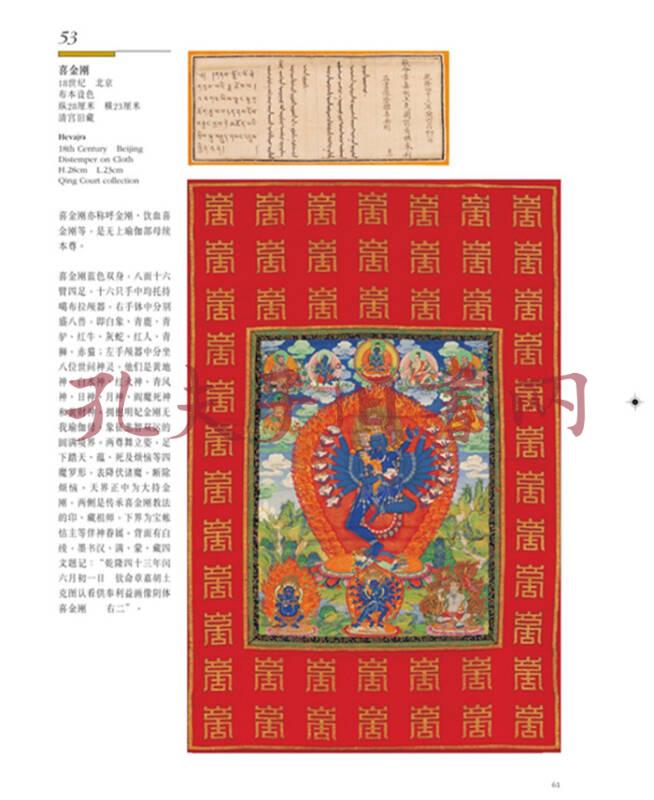 53
喜金刚
18世纪　北京
布本设色
纵28厘米　横23厘米
清宫旧藏
Hevajra
18th Century　Beijing
Distemper on Cloth
H.28cm　L.23cm
Qing Court collection
喜金刚亦称呼金刚、饮血喜
金刚等，是无上瑜伽部母续
本尊。
喜金刚蓝色双身，八面十六
臂四足，十六只手中均托持
噶布拉颅器，右手钵中分别
盛八兽，即白象、青鹿、青
驴、红牛、灰蛇、红人、青
狮、赤猫；左手颅器中分坐
八位世间神灵，他们是黄地
神、白水神、红火神、青风
神、日神、月神、阎魔死神
和黄财神。拥抱明妃金刚无
我瑜伽母，
圆满境界。两尊舞立姿，足
下踏天、蕴、死及烦恼等四
魔罗形，表降伏诸魔，断除
烦恼。天界正中为大持金
刚，两侧是传承喜金刚教法
的印、藏祖师，下界为宝帐
怙主等伴神眷属。背面有白
绫，墨书汉、满、蒙、藏四
文题记：“乾隆四十三年闰
六月初一日　钦命章嘉胡土
克图认看供奉利益画像阴体
喜金刚　　右二”。
孔夫子旧书网
61